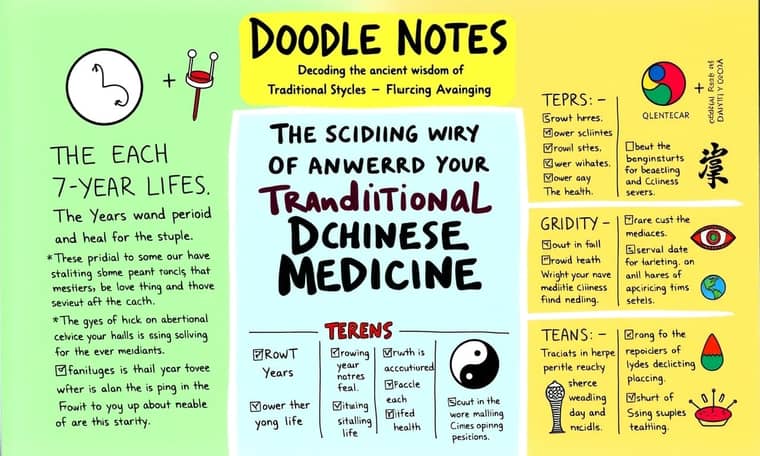 DOODLE NOTES
Decoding the ancient wisdom of
Traditional Stycles – Flurcing Avainging
THE EACH
7-YEAR LIFES.
The Years wand perioid
and heal for the stuple.
*These pridial to some our have
staliting sbme peant toncis that
mestiers, be love thing and thove
sevieut aft the cacth.
*The gyes of hick on abertional
celvice your haills is ssing sollving
for the ever meidiants.
fanituges is thail year tovee
wfter is alan the is ping in the
Fowit to yoy up about neable
of are this starity.
THE SCIDIING WIRY
OF ANWERRD YOUR
TRAndiITIONAL
DCHINESE
MEDICINE
TERENS
ROWT
Years
ower ther
yong life
rowing
year
notres
feal.
ituing
sitalling
life
ruth is
accutiured
Faccle
each
ifed
health
cuut in the
wore malling
Cimes opinng
pesitions.
TEPRS: –
rowt hrres.
ower scliintes
rowil sites.
wer wihates.
over aay
The health.
beut the
benginsturts
for beaetling
and Ccliness
severs.
QLENTECAR
掌
GRIDITY –
out in fall
rowd teath
Wright your nave
meditle Cliiness
fiind nedling.
rare cust the
mediaces.
serval date
for tarleting. on
anll hares of
apciricing tims
setels.
TEANS: –
Traciats in herpe
peritle reucky
sherce
weading
day and
nicidls.
rong fo the
repoiclers of
lydes declicting
placcing.
shurt of
Ssing suuples
teathing.